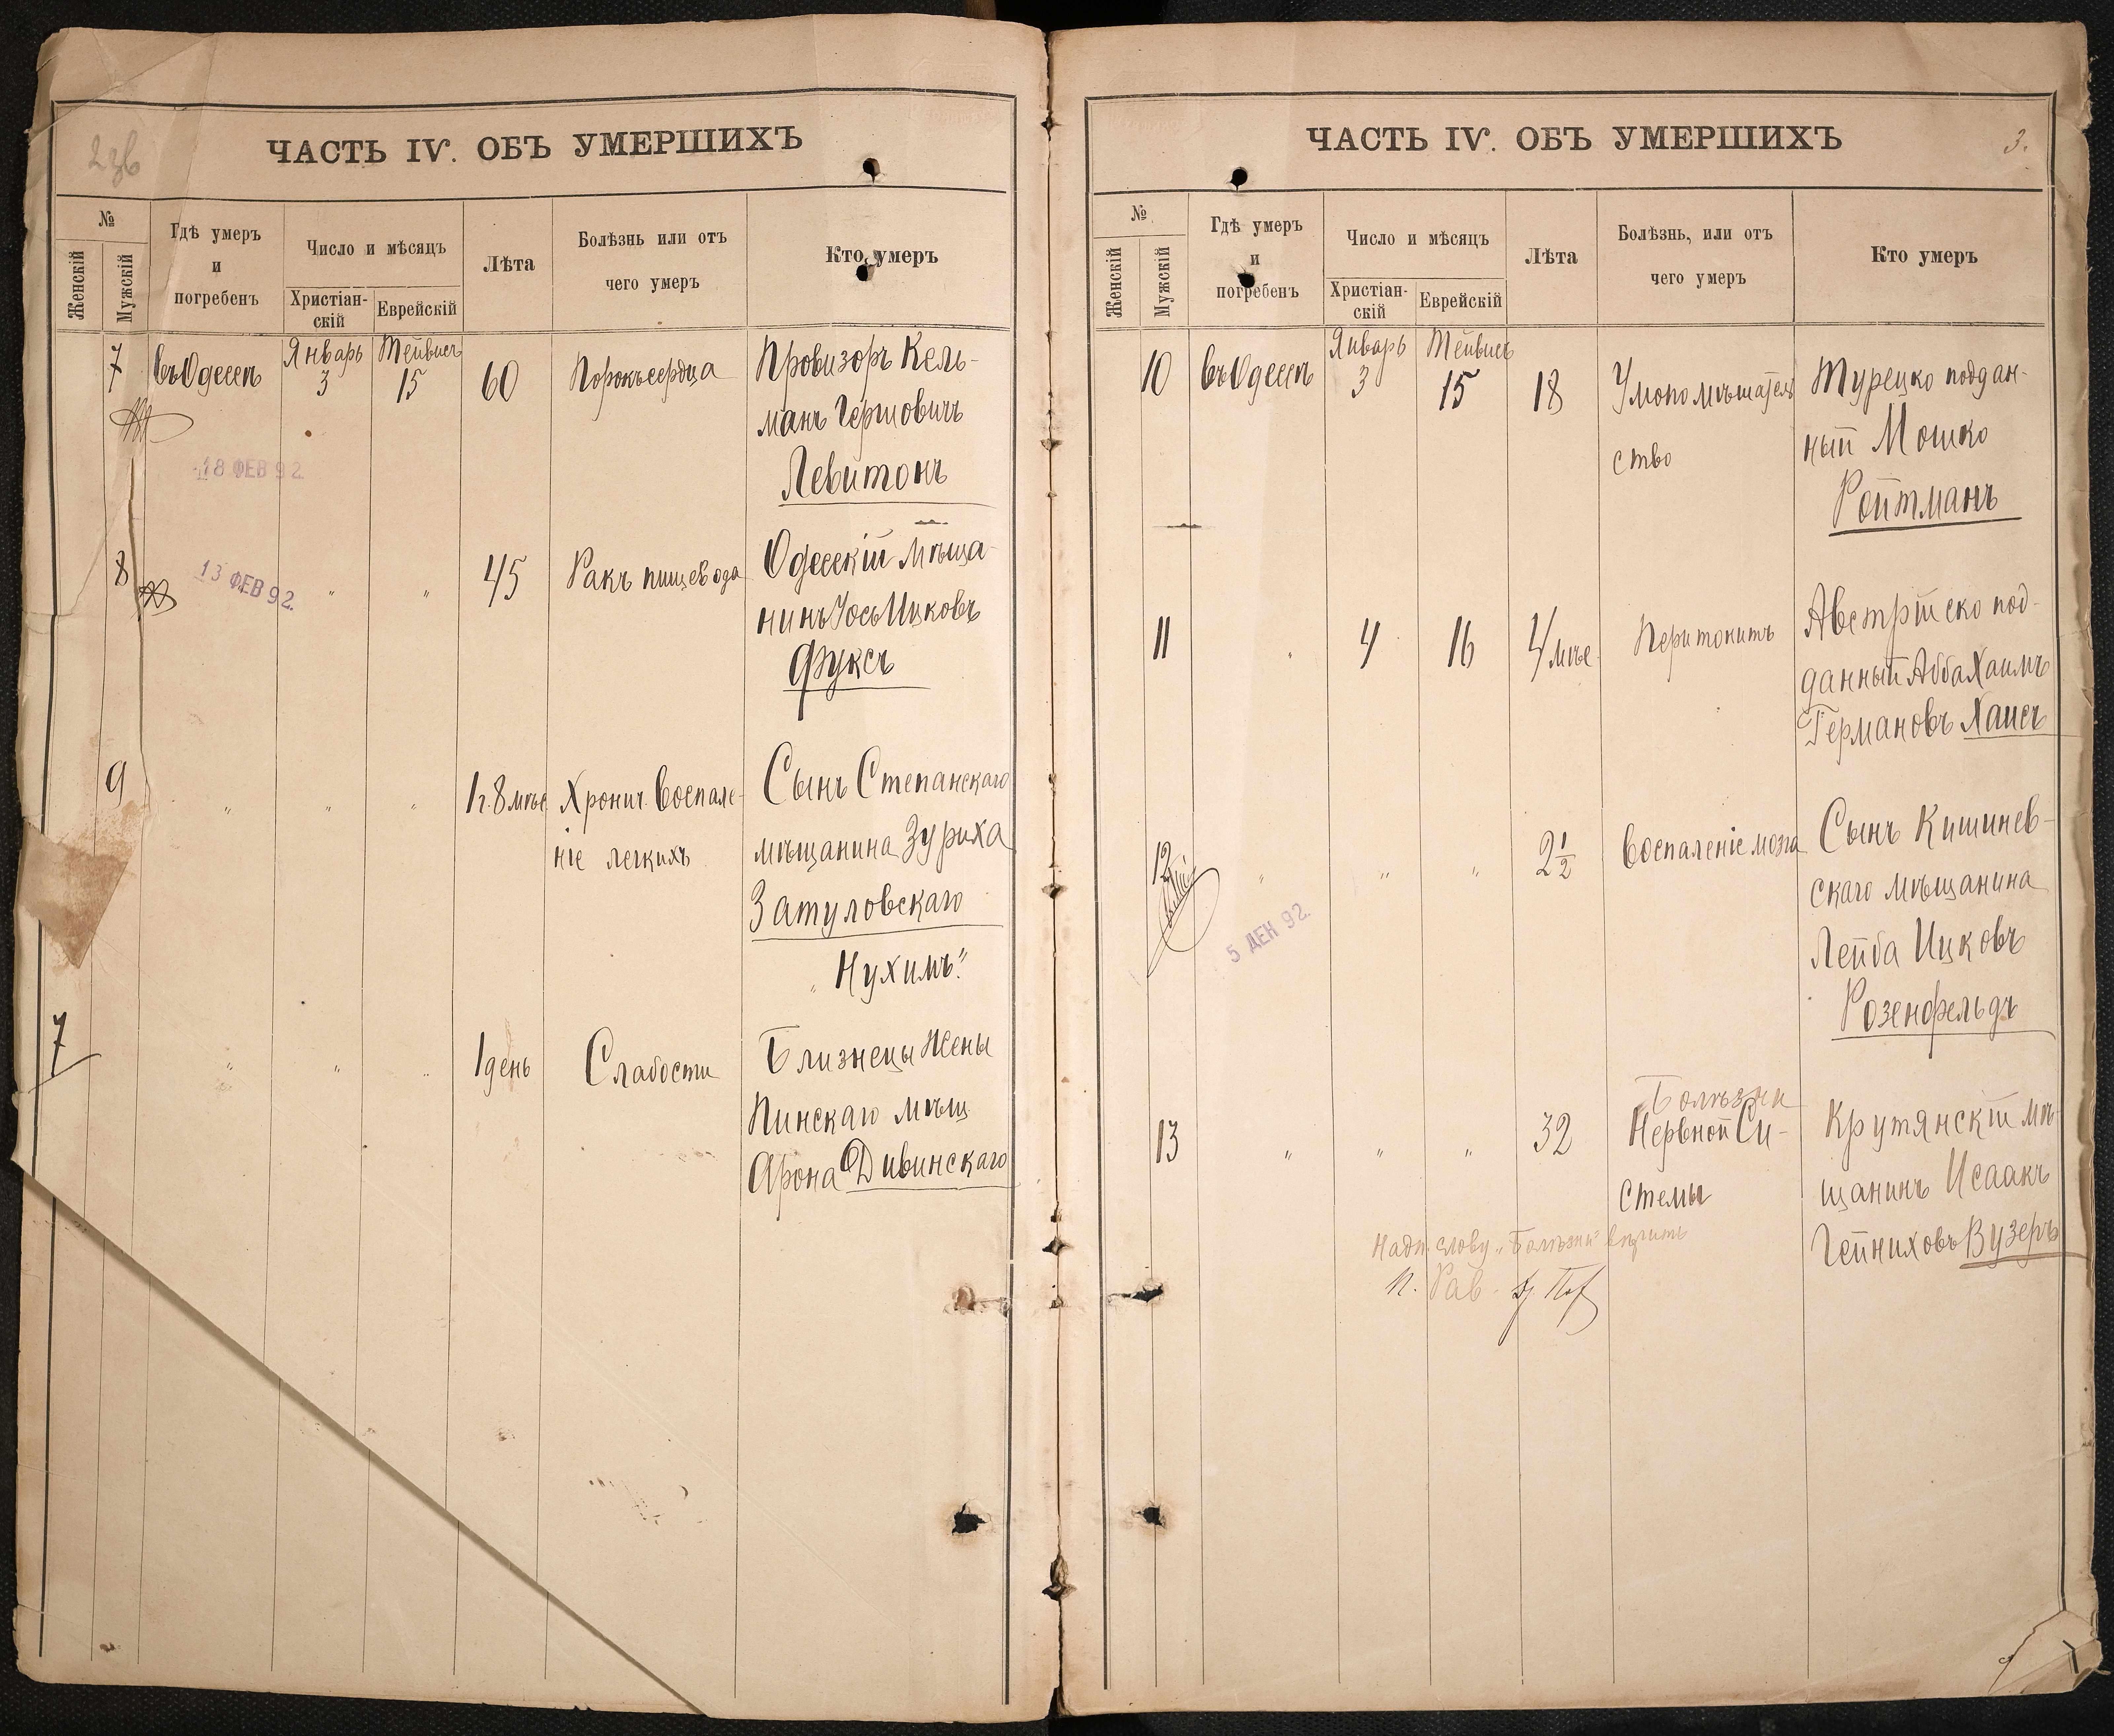 ЧАСТЬ IV. ОБЪ УМЕРШИХЪ
№
Женскій
Мужскій
Гдѣ умеръ
и
погребенъ
Число и мѣсяцъ
Христіан-
скій
Еврейскій
Лѣта
Болѣзнь или отъ
чего умеръ
Кто умеръ
7 въ Одессѣ Январь 3 Тейвисъ 15 60 Порокъ сердца Провизоръ Кель-
манъ Гершовичъ
Левитонъ
18 ФЕВ 92
8 " " 45 Ракъ пищевода Одесскій мѣща-
нинъ Іось Ицковъ
Фуксъ
13 ФЕВ 92.
9 " " " 1 г. 8 мѣс. Хронич. Воспале- Сынъ Степанскаго
ніе легкихъ мѣщанина Зуриха
Затуловскаго
"Нухимъ."
7 " " " 1 день Слабости Близнецы жены
Пинскаго мѣщ.
Арона Дивинскаго
ЧАСТЬ IV. ОБЪ УМЕРШИХЪ
3.
№
Женскій
Мужскій
Гдѣ умеръ
и
погребенъ
Число и мѣсяцъ
Христіан-
скій
Еврейскій
Лѣта
Болѣзнь, или отъ
чего умеръ
Кто умеръ
10 въ Одессѣ Январь 3 Тейвисъ 15 18 Умопомѣшатель Турецко поддан-
ство ный Мошко
Ройтманъ
11 " 4 16 4 мѣс. Перитонитъ Австрійско под-
данный Абба Хаимъ
Германовъ Хаисъ
12 " " " 2 1/2 Воспаленіе мозга Сынъ Кишинев-
скаго мѣщанина
Лейба Ицковъ
Розенфельдъ
5 ДЕК 92.
Болѣзни
13 " " " 32 Нервной Си- Крутянскій мѣ-
стемы щанинъ Исаакъ
Гейниховъ Вузеръ
Надп. слову "Болѣзни" вѣрить
И. Рав.